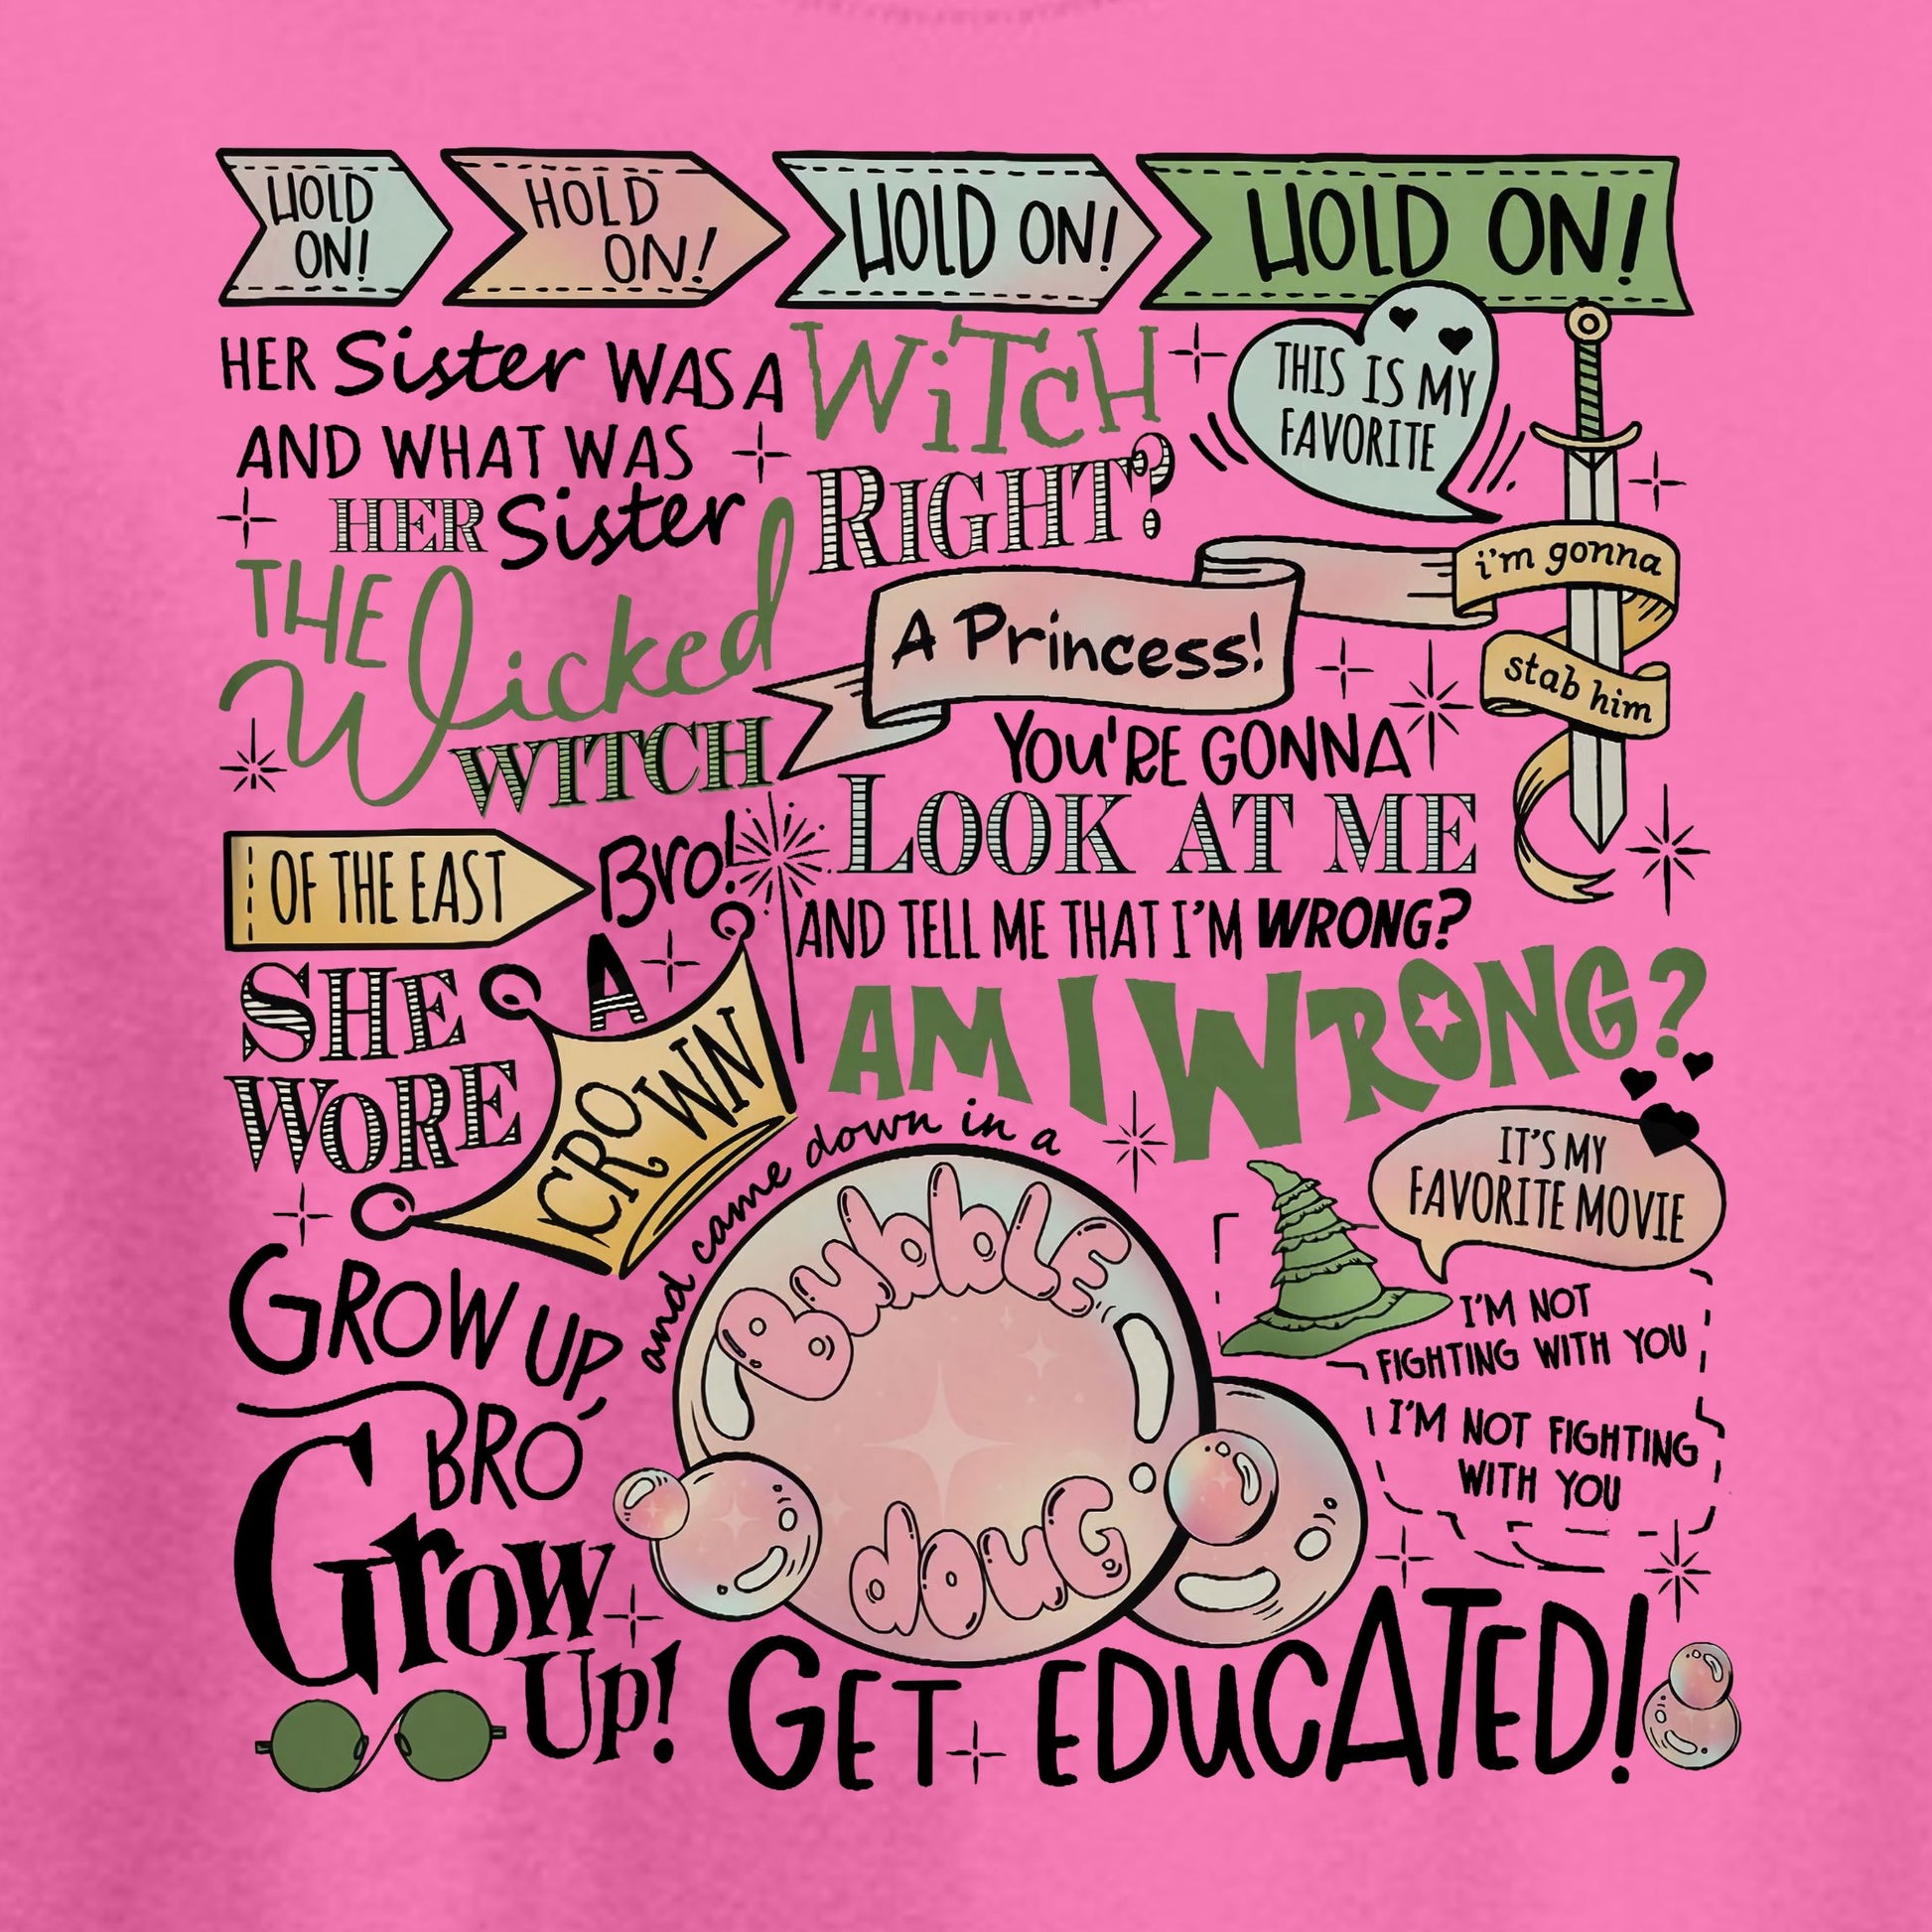 HOLD ON!
HOLD ON!
HOLD ON!
HOLD ON!
HER Sister WAS A WiTcH
AND WHAT WAS RIGHT?
HER Sister
THE Wicked
WITCH
THIS IS MY
FAVORITE
i'm gonna
stab him
A Princess!
YOU'RE GONNA
LOOK AT ME
AND TELL ME THAT I'M WRONG?
AM I WRONG?
OF THE EAST Bro!
SHE
WORE
A
CROWN
and came down in a
BubbLE
douG
IT'S MY
FAVORITE MOVIE
I'M NOT
FIGHTING WITH YOU
I'M NOT FIGHTING
WITH YOU
GROW UP,
BRO
Grow
Up!
GET EDUCATED!